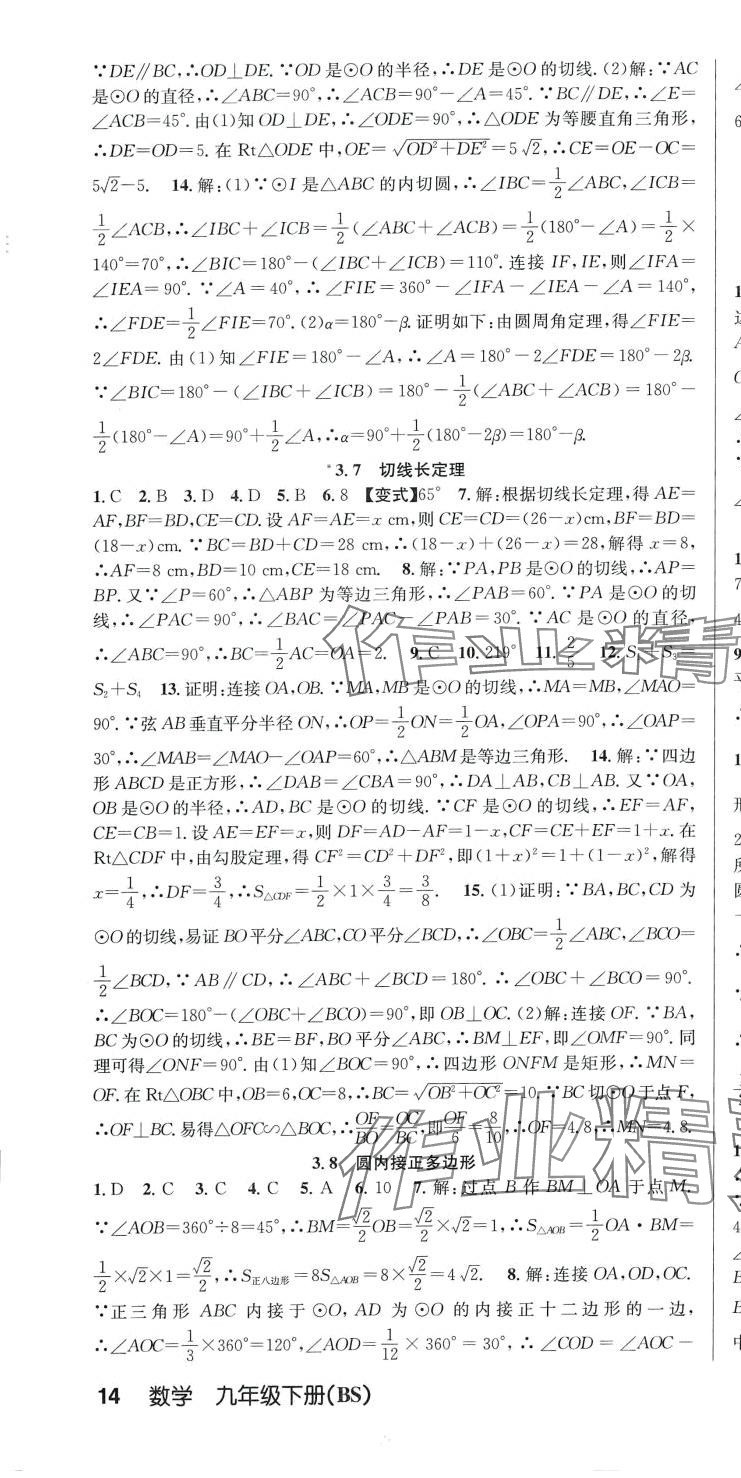 ∵DE∥BC,∴OD⊥DE.∵OD是⊙O的半径,∴DE是⊙O的切线.(2)解:∵AC
是⊙O的直径,∴∠ABC=90°,∴∠ACB=90°-∠A=45°.∵BC∥DE,∴∠E=
∠ACB=45°.由(1)知OD⊥DE,∴∠ODE=90°,∴△ODE为等腰直角三角形,
∴DE=OD=5.在Rt△ODE中,OE=√(OD²+DE²)=5√2,∴CE=OE-OC=
5√2-5. 14.解:(1)∵⊙I是△ABC的内切圆,∴∠IBC=1/2∠ABC,∠ICB=
1/2∠ACB,∴∠IBC+∠ICB=1/2(∠ABC+∠ACB)=1/2(180°-∠A)=1/2×
140°=70°,∴∠BIC=180°-(∠IBC+∠ICB)=110°.连接IF,IE,则∠IFA=
∠IEA=90°.∵∠A=40°,∴∠FIE=360°-∠IFA-∠IEA-∠A=140°,
∴∠FDE=1/2∠FIE=70°.(2)α=180°-β.证明如下:由圆周角定理,得∠FIE=
2∠FDE.由(1)知∠FIE=180°-∠A,∴∠A=180°-2∠FDE=180°-2β.
∵∠BIC=180°-(∠IBC+∠ICB)=180°-1/2(∠ABC+∠ACB)=180°-
1/2(180°-∠A)=90°+1/2∠A,∴α=90°+1/2(180°-2β)=180°-β.
3.7 切线长定理
1.C 2.B 3.D 4.D 5.B 6.8 【变式】65° 7.解:根据切线长定理,得AE=
AF,BF=BD,CE=CD.设AF=AE=x cm,则CE=CD=(26-x)cm,BF=BD=
(18-x)cm.∵BC=BD+CD=28 cm,∴(18-x)+(26-x)=28,解得x=8,
∴AF=8 cm,BD=10 cm,CE=18 cm. 8.解:∵PA,PB是⊙O的切线,∴AP=
BP.又∵∠P=60°,∴△ABP为等边三角形,∴∠PAB=60°.∵PA是⊙O的切
线,∴∠PAC=90°,∴∠BAC=∠PAC-∠PAB=30°.∵AC是⊙O的直径,
∴∠ABC=90°,∴BC=1/2AC=OA=2. 9.C 10.219° 11.2/5 12.S₁+S₃=
S₂+S₄ 13.证明:连接OA,OB.∵MA,MB是⊙O的切线,∴MA=MB,∠MAO=
90°.∵弦AB垂直平分半径ON,∴OP=1/2ON=1/2OA,∠OPA=90°,∴∠OAP=
30°,∴∠MAB=∠MAO-∠OAP=60°,∴△ABM是等边三角形. 14.解:∵四边
形ABCD是正方形,∴∠DAB=∠CBA=90°,∴DA⊥AB,CB⊥AB.又∵OA,
OB是⊙O的半径,∴AD,BC是⊙O的切线.∵CF是⊙O的切线,∴EF=AF,
CE=CB=1.设AE=EF=x,则DF=AD-AF=1-x,CF=CE+EF=1+x.在
Rt△CDF中,由勾股定理,得CF²=CD²+DF²,即(1+x)²=1+(1-x)²,解得
x=1/4,∴DF=3/4,∴S△CDF=1/2×1×3/4=3/8. 15.(1)证明:∵BA,BC,CD为
⊙O的切线,易证BO平分∠ABC,CO平分∠BCD,∴∠OBC=1/2∠ABC,∠BCO=
1/2∠BCD,∵AB∥CD,∴∠ABC+∠BCD=180°.∴∠OBC+∠BCO=90°.
∴∠BOC=180°-(∠OBC+∠BCO)=90°,即OB⊥OC.(2)解:连接OF.∵BA,
BC为⊙O的切线,∴BE=BF,BO平分∠ABC,∴BM⊥EF,即∠OMF=90°.同
理可得∠ONF=90°.由(1)知∠BOC=90°,∴四边形ONFM是矩形,∴MN=
OF.在Rt△OBC中,OB=6,OC=8,∴BC=√(OB²+OC²)=10.∵BC切⊙O于点F,
∴OF⊥BC.易得△OFC∽△BOC,∴OF/BO=OC/BC,即OF/6=8/10,∴OF=4.8,∴MN=4.8.
3.8 圆内接正多边形
1.D 2.C 3.C 4.C 5.A 6.10 7.解:过点B作BM⊥OA于点M.
∵∠AOB=360°÷8=45°,∴BM=√2/2OB=√2/2×√2=1,∴S△AOB=1/2OA·BM=
1/2×√2×1=√2/2,∴S正八边形=8S△AOB=8×√2/2=4√2. 8.解:连接OA,OD,OC.
∵正三角形ABC内接于⊙O,AD为⊙O的内接正十二边形的一边,
∴∠AOC=1/3×360°=120°,∠AOD=1/12×360°=30°,∴∠COD=∠AOC-
14 数学 九年级下册(BS)
作业精
作业精